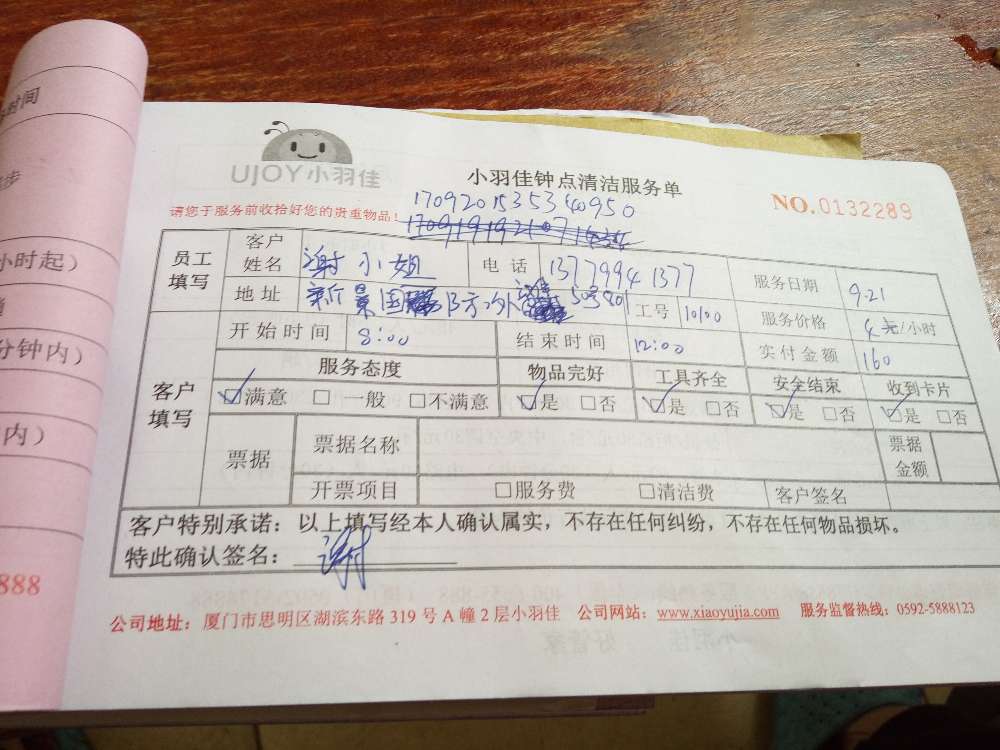 时间
步
小时起）
分钟内）
内）
8888
UJOY小羽佳
小羽佳钟点清洁服务单
1709201535340950
NO.0132289
请您于服务前收拾好您的贵重物品！
员工填写 客户姓名 谢小姐 电话 13779941377 服务日期 9.21
地址 新景国 503801 工号 10100 服务价格 4元/小时
客户填写 开始时间 8:00 结束时间 12:00 实付金额 160
服务态度 物品完好 工具齐全 安全结束 收到卡片
☑满意 □一般 □不满意 ☑是 □否 ☑是 □否 ☑是 □否 ☑是 □否
票据 票据名称 票据金额
开票项目 □服务费 □清洁费 客户签名
客户特别承诺：以上填写经本人确认属实，不存在任何纠纷，不存在任何物品损坏。
特此确认签名： 谢
公司地址：厦门市思明区湖滨东路 319 号 A 幢 2 层小羽佳 公司网站：www.xiaoyujia.com 服务监督热线：0592-5888123